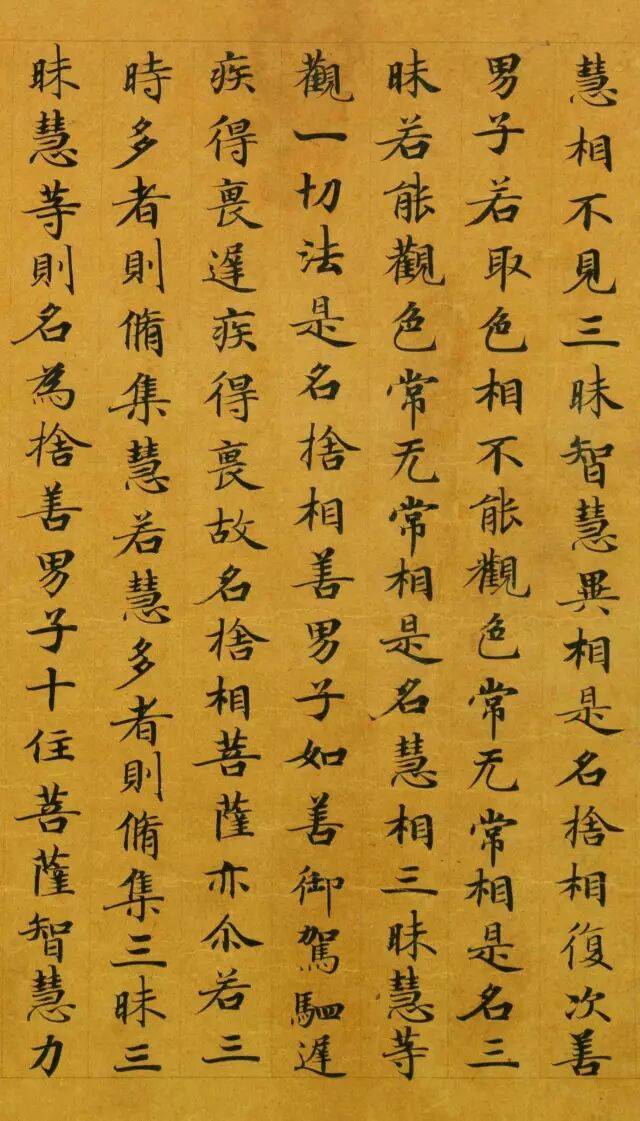 慧相不見三昧智慧異相是名捨相復次善
男子若取色相不能觀色常无常相是名三
昧若能觀色常无常相是名慧相三昧慧等
觀一切法是名捨相善男子如善御駕駟遲
疾得遲疾得故名捨相菩薩亦尒若三
時多者則脩集慧若慧多者則脩集三昧三
昧慧等則名為捨善男子十住菩薩智慧力